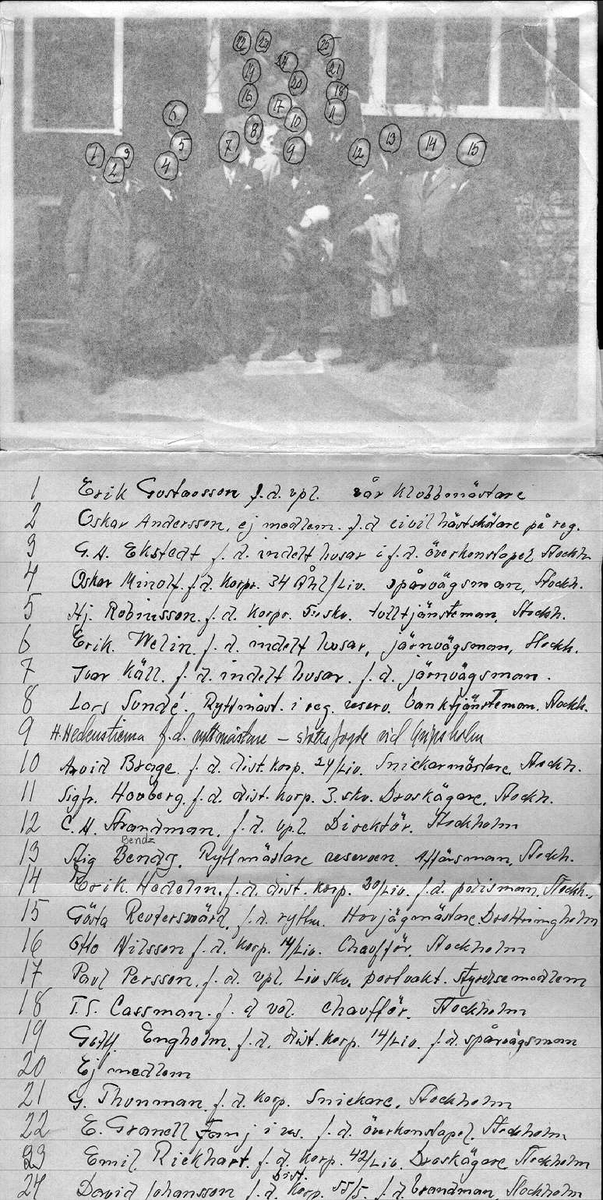 22 23 25
24
19 20 21
16 17 18
6 10 11
8
1 3 5 7 9 12 13 14 15
2 4
1 Erik Gustavsson f.d. vpl. vår klubbmästare
2 Oskar Andersson, ej medlem. f.d civil hästskötare på reg.
3 G.A. Ekstedt f.d. indelt husar i f.d. överkonstapel Stockh.
4 Oskar f.d. korpr. 34 /Liv. spårvägsman, Stockh.
5 Hj. Robnisson. f.d. korpr. skv. tulltjänsteman, Stockh.
6 Erik. Welin. f.d. indelt husar, järnvägsman, Stockh.
7 Ivar Käll. f.d. indelt husar. f.d. järnvägsman.
8 Lars Sundé. Ryttmäst. i reg. reserv. banktjänsteman. Stockh.
9 H. Hedenstierna f.d. ryttmästare – slottsfogde vid Gripsholm
10 Arvid Brage. f.d. dist. korp. 24/Liv. Snickarmästare, Stockh.
11 Sigfr. Hovberg, f.d. dist. korp. 3. skv. Droskägare, Stockh.
12 C.H. Strandman. f.d. vpl Direktör. Stockholm
Bendz
13 Stig Bendz. Ryttmästare reserven. Affärsman, Stockh.
14 Erik Hedelin, f.d. dist. korp. 30/Liv. f.d. polisman, Stockh.,
15 Gösta Reuterswärd, f.d. ryttm. Hovjägmästare Drottningholm
16 Otto Nilsson f.d. korp. 14/Liv. Chaufför, Stockholm
17 Paul Persson, f.d. vpl. Liv skv. portvakt. styrelsemedlem
18 T.S. Cassman. f.d vol. chaufför. Stockholm
19 Engholm. f.d. dist. korp. 14/Liv. f.d. spårvägsman
20 Ej medlem
21 G. Thunman. f.d. korp. Snickare, Stockholm
22 E. Granoll Fanj i f.d. överkonstapel, Stockholm.
23 Emil Rickhart. f.d. korp. 42/Liv. Droskägare, Stockholm
Dist.
24 David Johansson f.d. korp. 55/5. f.d. brandman, Stockholm